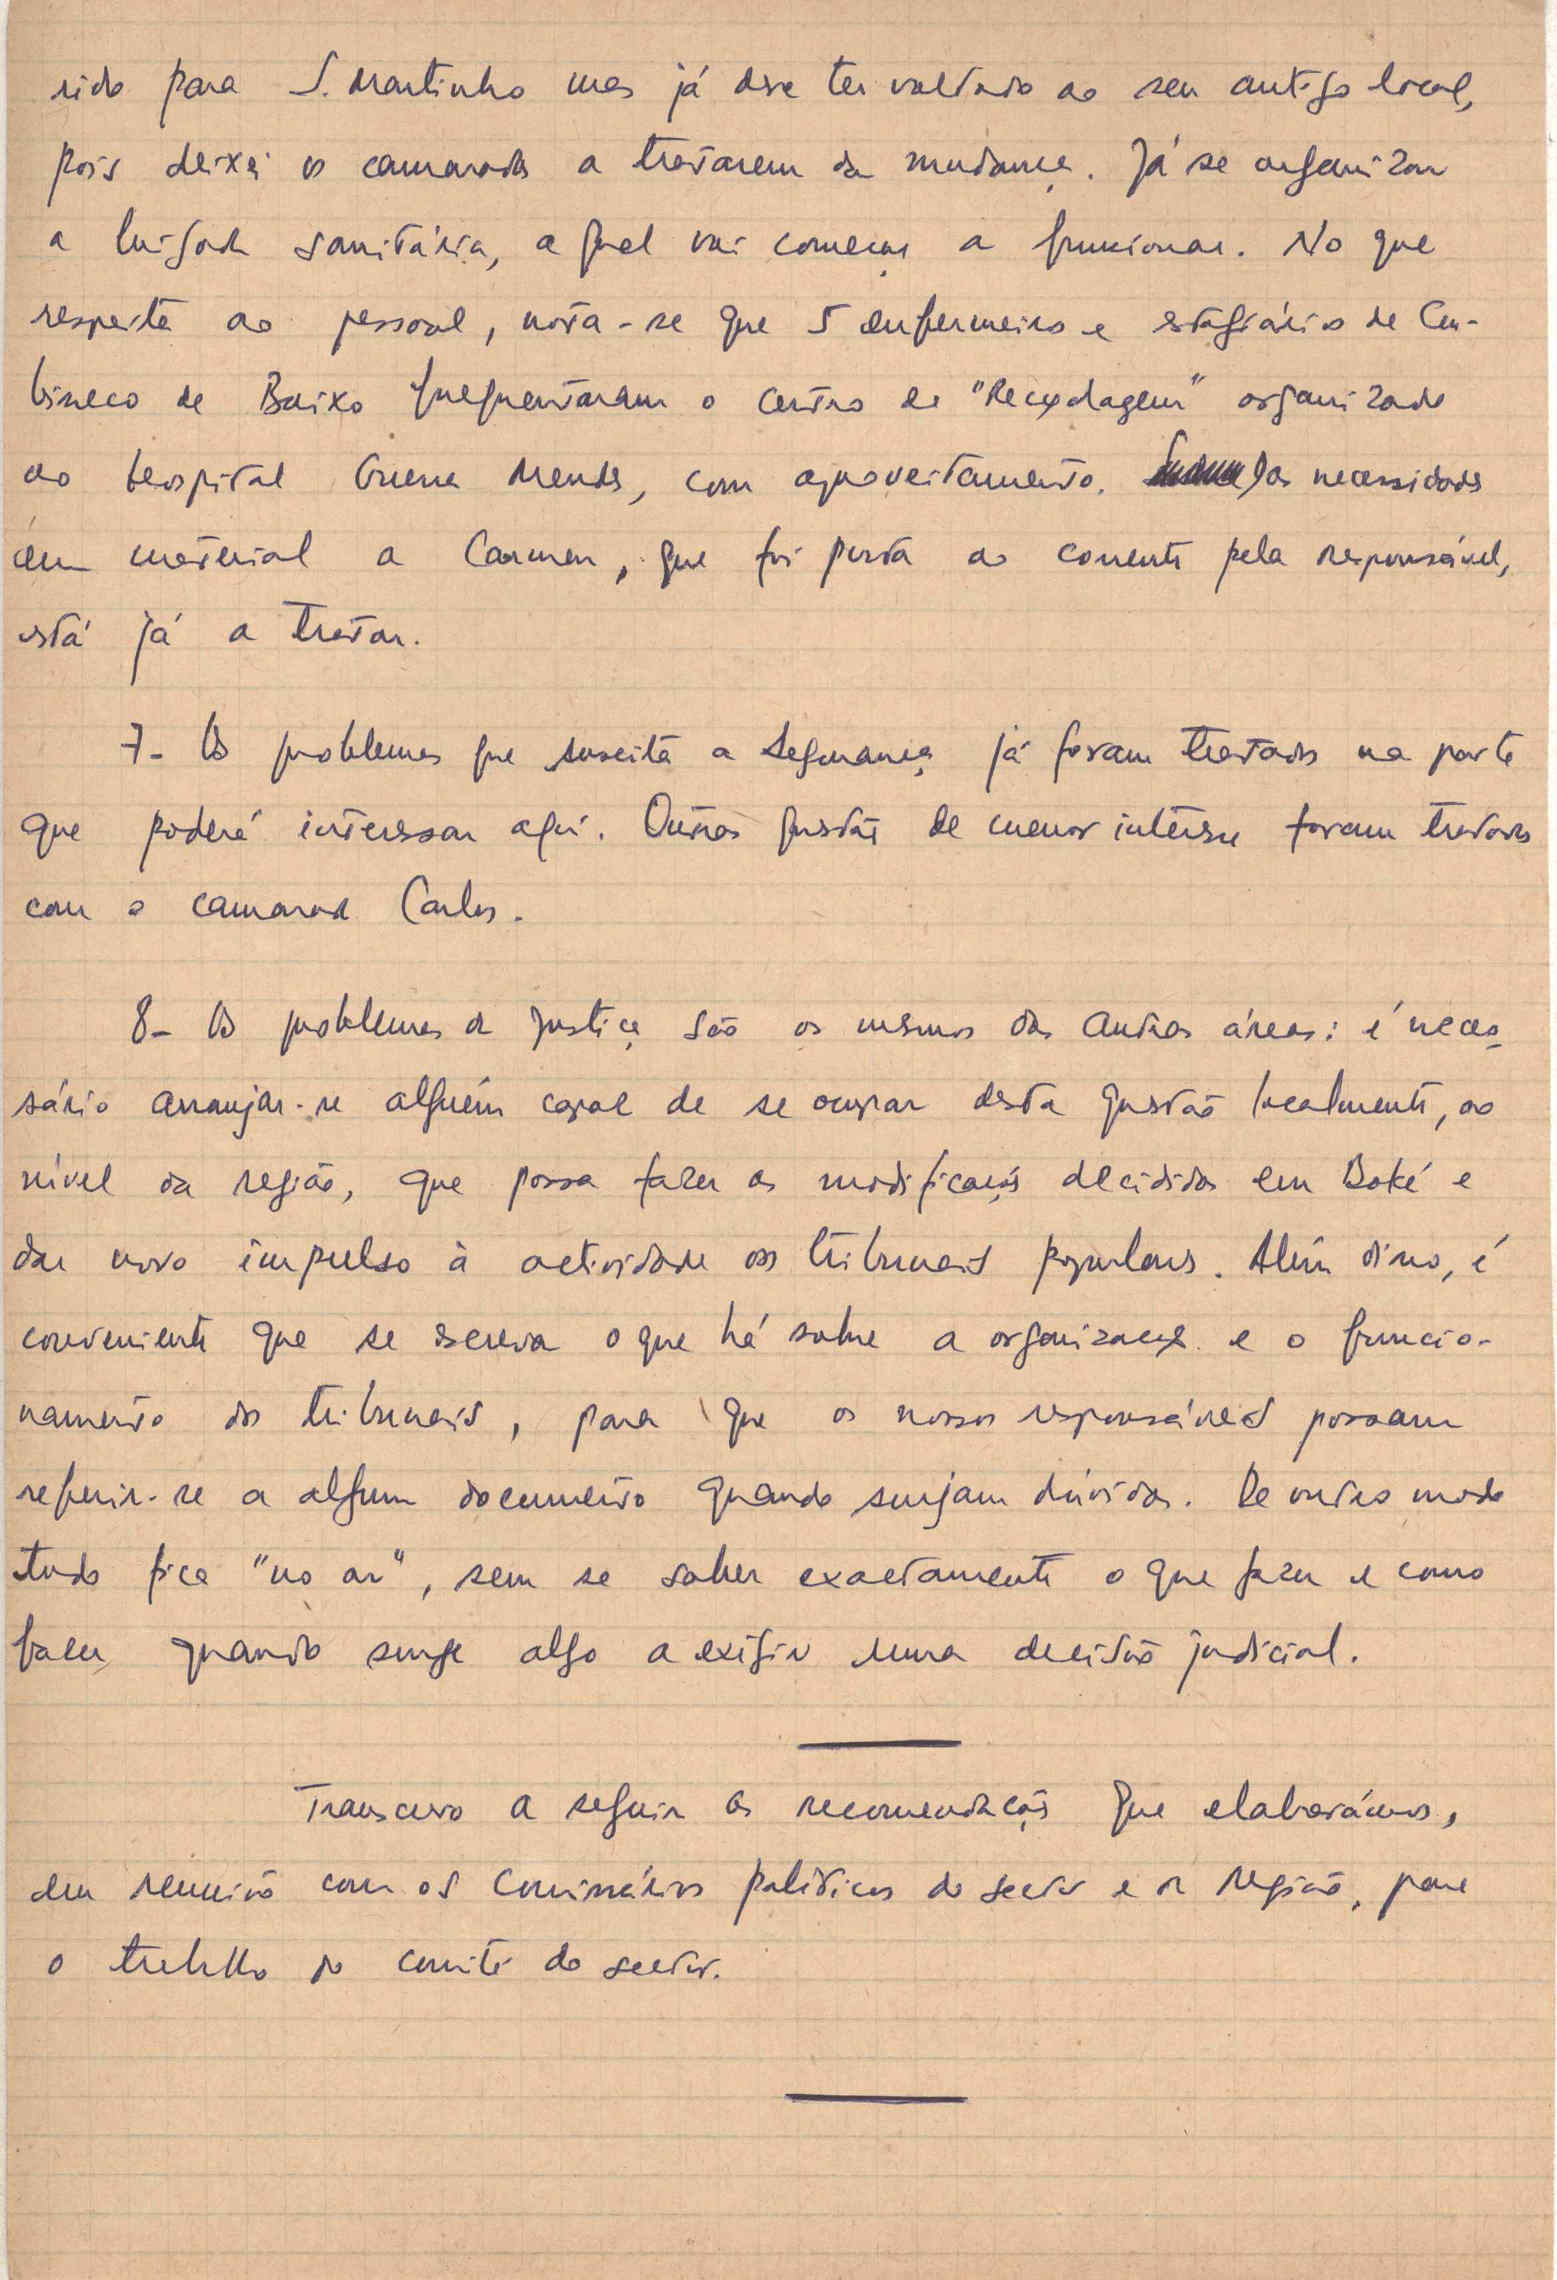 rido para S. Martinho mas já deve ter voltado ao seu antigo local,
pois deixei os camaradas a tratarem da mudança. Já se organizou
a brigada sanitária, a qual vai começar a funcionar. No que
respeita ao pessoal, nota-se que 5 enfermeiros e estagiários de Cu-
bisseco de Baixo frequentaram o centro de "Reciclagem" organizado
no hospital Guerra Mendes, com aproveitamento. Das necessidades
em material a Carmen, que foi posta ao corrente pela responsável,
está já a tratar.
7- Os problemas que suscita a segurança já foram tratados na parte
que poderá interessar aqui. Outras questões de menor interesse foram tratadas
com o camarada Carlos.
8- Os problemas da justiça são os mesmos das outras áreas: é neces-
sário arranjar-se alguém capaz de se ocupar desta questão localmente, ao
nível da região, que possa fazer as modificações decididas em Boké e
dar novo impulso à actividade dos tribunais populares. Além disso, é
conveniente que se escreva o que há sobre a organização e o funcio-
namento dos tribunais, para que os nossos responsáveis possam
referir-se a algum documento quando surjam dúvidas. De outro modo
tudo fica "no ar", sem se saber exactamente o que fazer e como
fazer, quando surge algo a exigir uma decisão judicial.
Transcrevo a seguir as recomendações que elaborámos,
em reunião com os Comissários políticos do sector e da região, para
o trabalho do comité do sector.